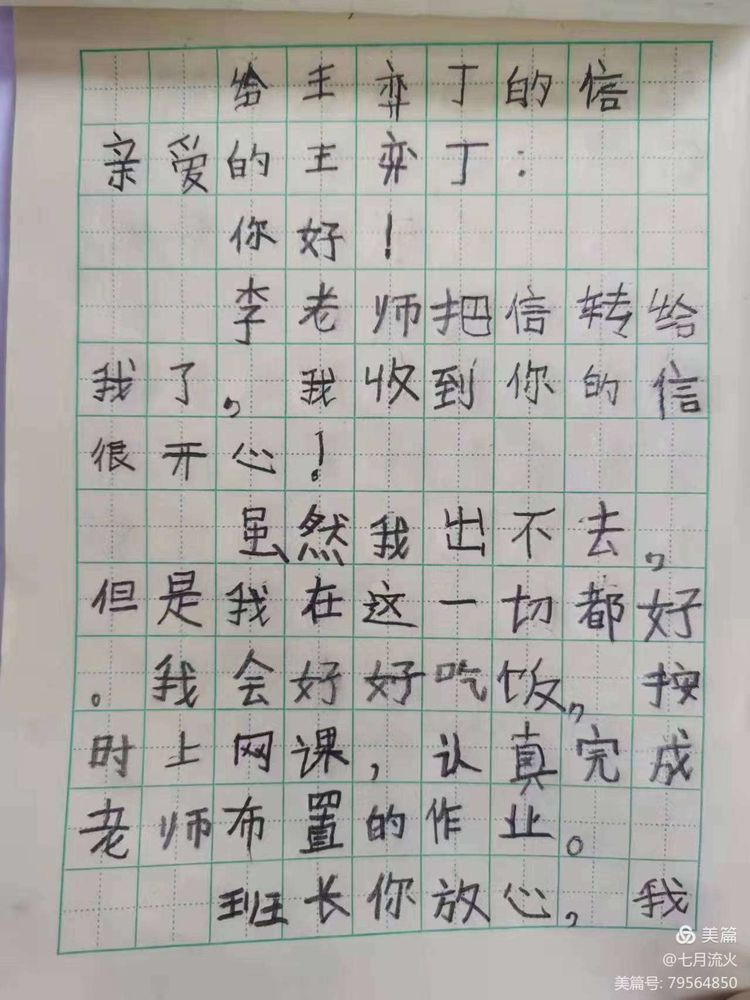 给王弈丁的信
亲爱的王弈丁：
你好！
李老师把信转给
我了，我收到你的信
很开心！
虽然我出不去，
但是我在这一切都好
。我会好好吃饭，按
时上网课，认真完成
老师布置的作业。
班长你放心，我
美篇
@七月流火
美篇号: 79564850